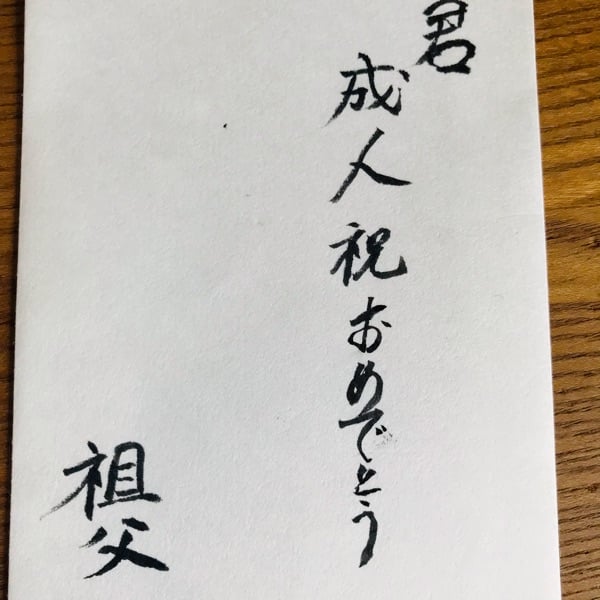 君
成人祝おめでとう
祖父